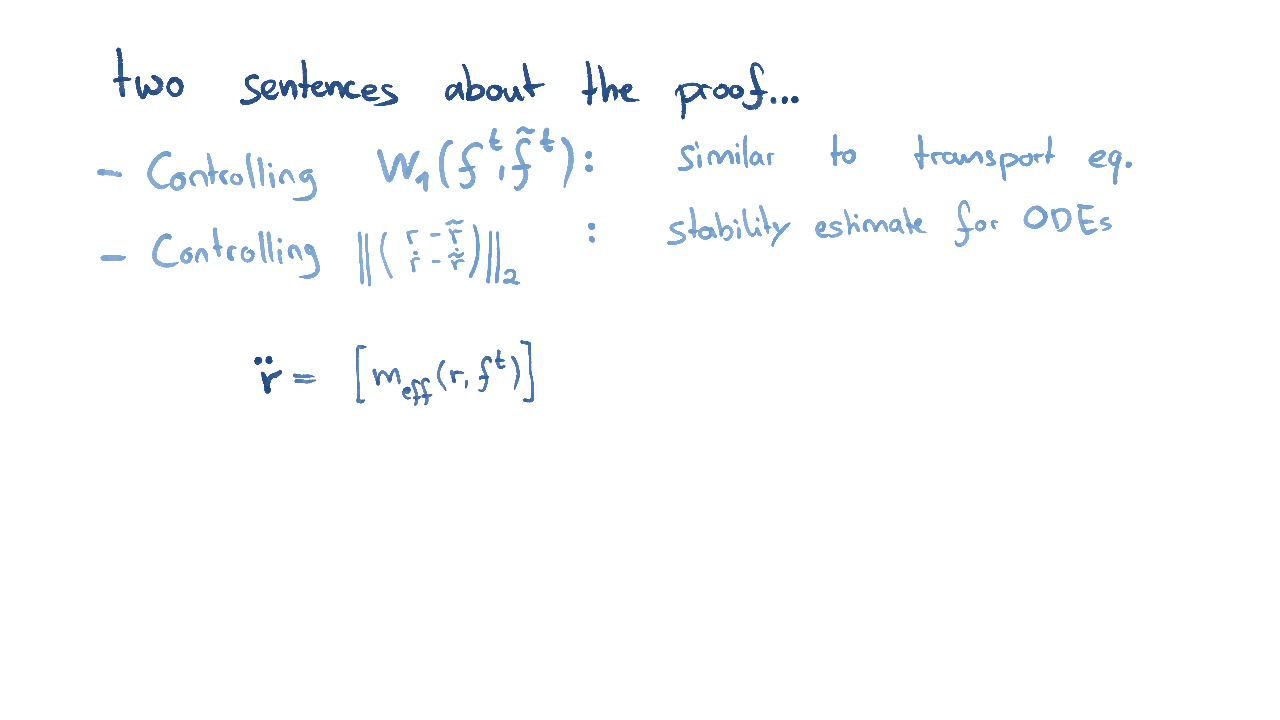 two sentences about the proof...
- Controlling W₁(fᵗ, f̃ᵗ): similar to transport eq.
- Controlling ‖(r - r̃ ṙ - ṙ̃)‖₂ : stability estimate for ODEs
r̈ = [m_eff(r, fᵗ)]